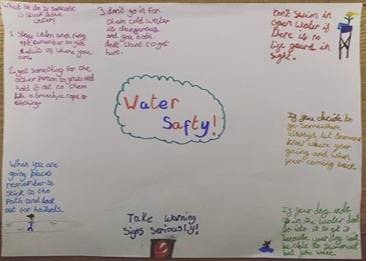 What to do if someone
is stuck in the
water!
1. Stay calm and ring
999 remember to give
details of where you
are.
2. get something for the
other person to grab and
hold it out to them
like a branch, a rope or
clothing
3. don't go in for
them cold water
is dangerous
and you both
don't want to get
hurt.
Don't Swim in
open Water if
there is no
life guard in
sight.
Water
Safty!
If you decide to
go somewhere
always let someone
know where your
going and when
your coming back.
When you are
going places
remember to
stick to the
Path and look
out for hazards.
Take Warning
Signs Seriously!
If your dog ends
up in the water don't
go into it to get it
because your dog will
be able to swim out
but you wont.